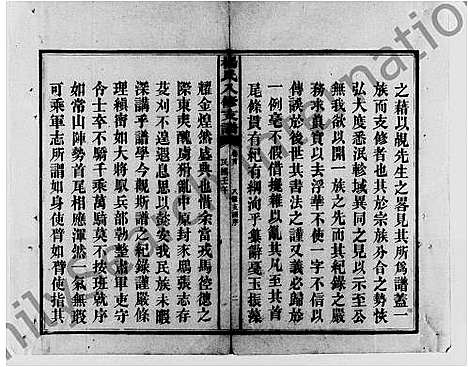 之藉以覘先生之畧見其所爲譜蓋一
族而支修者也其於宗族分合之勢恢
弘大度悉泯畛域同異以示示至公
無我欲以開一族之先而其紀錄之
務求真實以去浮華不使一字不信以
傳誤於後世其書法之謹又義必歸於
一例毫不假借攙雜以亂其凡至其首
尾條貫有杞有綱洵乎集辭戞玉振藻
楊氏八修支譜
耀金煌然盛典也惜余當戎馬倥傯之
際東夷醜虜猾亂中原封豕鴟張志存
芟刈不遑退息思以彭安我民族未暇
深講乎譜學今觀斯譜之紀錄謹嚴條
理縝密如大將馭兵部勒整肅軍吏守
令士卒不驕千乘萬騎莫不按班就序
如常山陣勢首尾相應渾然一氣無瑕
可乘軍志所謂如身使臂如臂使指其